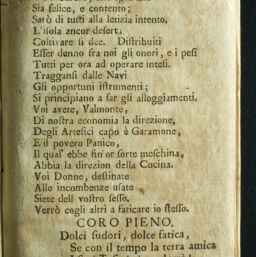 Sia felice, e contento;
Sarò di tutti alla letizia intento.
L'isola ancor deserta
Coltivare si dee. Distribuiti
Esser denno fra noi gli onori, e i pesi
Tutti per ora ad operare intesi.
Traggansi dalle Navi
Gli opportuni istrumenti;
Si principiano a far gli alloggiamenti.
Voi avete, Valmonte,
Di nostra economia la direzione,
Degli Artefici capo è Garamone,
E il povero Panico,
Il qual' ebbe fin or sorte meschina,
Abbia la direzion della Cucina.
Voi Donne, destinate
Alle incombenze usate
Siete dell vostro sesso.
Verrò cogli altri a faticare io stesso.
CORO PIENO.
Dolci sudori, dolce fatica,
Se con il tempo la terra amica